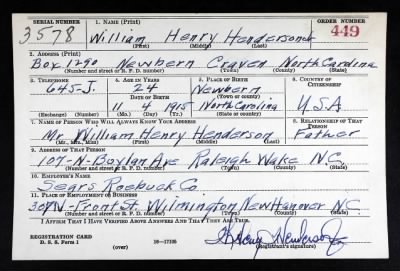 SERIAL NUMBER 1. NAME (Print) ORDER NUMBER
3578 William Henry Henderson Jr 449
(First) (Middle) (Last)
2. ADDRESS (Print)
Box 1290 Newbern Craven North Carolina
(Number and street or R. F. D. number) (Town) (County) (State)
3. TELEPHONE 4. AGE IN YEARS 5. PLACE OF BIRTH 6. COUNTRY OF CITIZENSHIP
645-J. 24 Newbern
DATE OF BIRTH (Town or county)
11 4 1915 North Carolina U.S.A
(Exchange) (Number) (Mo.) (Day) (Yr.) (State or country)
7. NAME OF PERSON WHO WILL ALWAYS KNOW YOUR ADDRESS 8. RELATIONSHIP OF THAT PERSON
Mr. William Henry Henderson Father
(Mr., Mrs., Miss) (First) (Middle) (Last)
9. ADDRESS OF THAT PERSON
107-N-Boylan Ave Raleigh Wake N.C.
(Number and street or R. F. D. number) (Town) (County) (State)
10. EMPLOYER'S NAME
Sears Roebuck Co.
11. PLACE OF EMPLOYMENT OR BUSINESS
307 N-Front St. Wilmington New Hanover N.C.
(Number and street or R. F. D. number) (Town) (County) (State)
I AFFIRM THAT I HAVE VERIFIED ABOVE ANSWERS AND THAT THEY ARE TRUE.
REGISTRATION CARD
D. S. S. Form 1 (over) 16-17105 Henry Henderson Jr
(Registrant's signature)